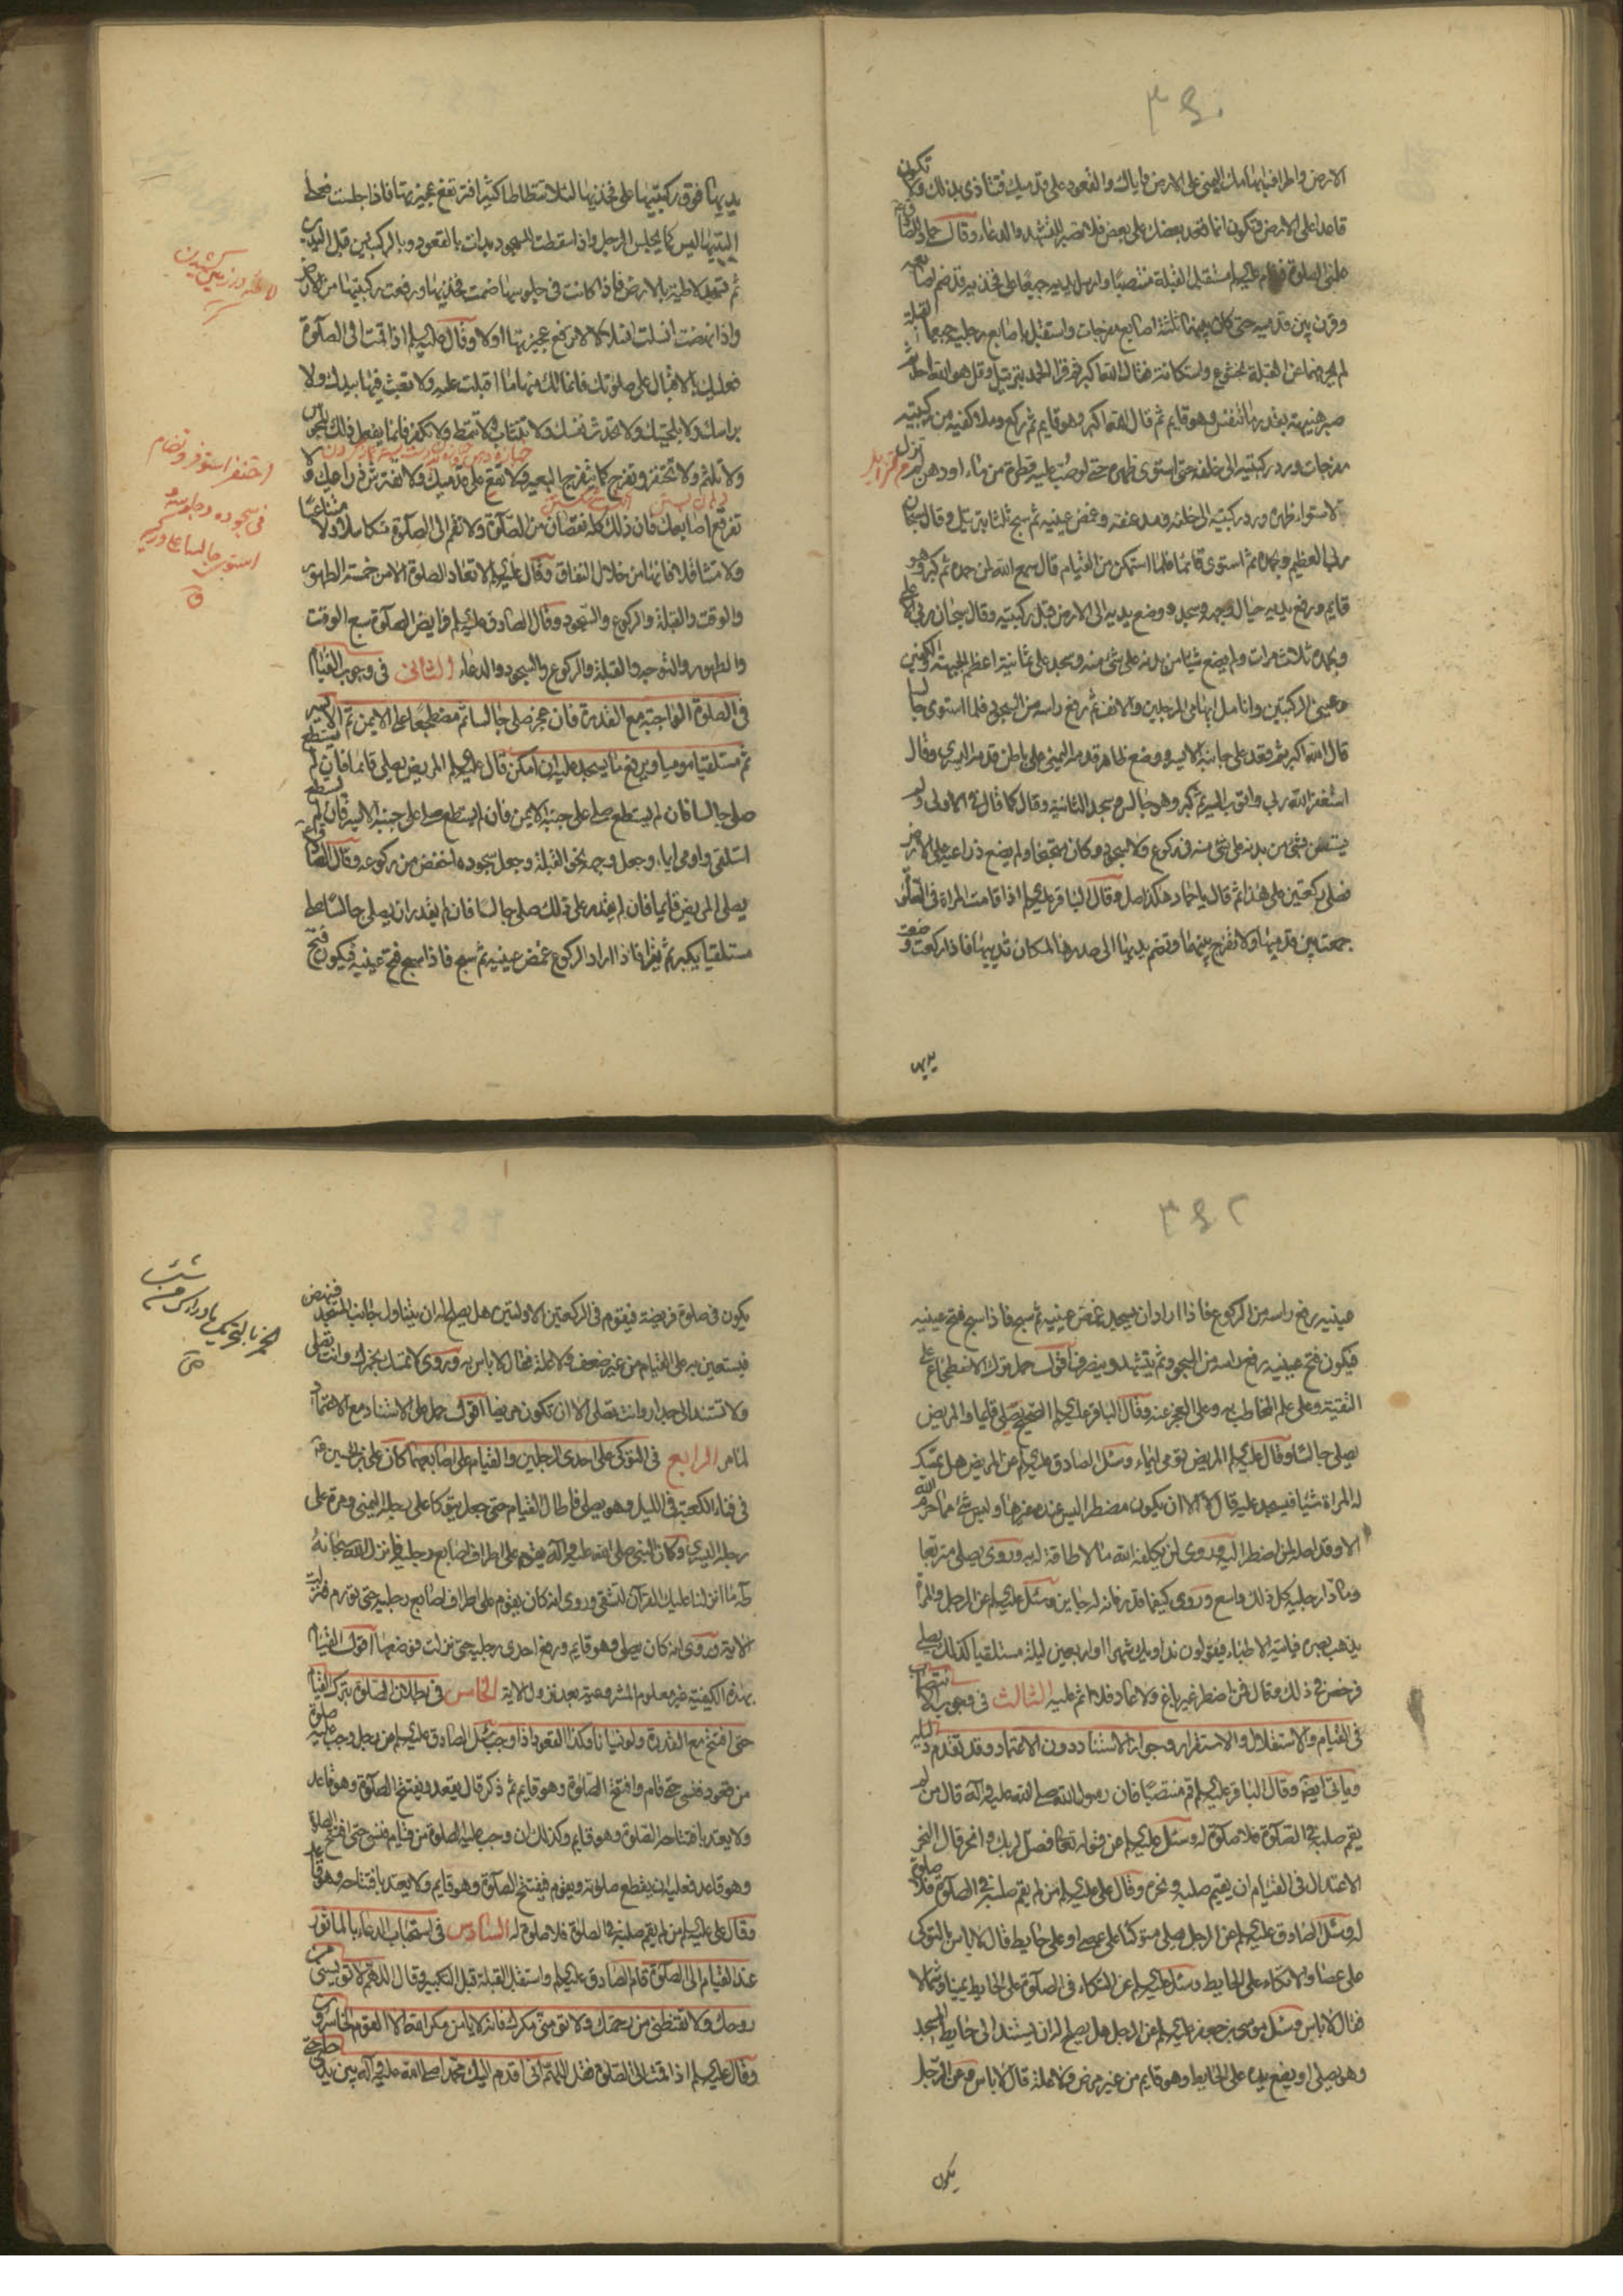 ٣٤٠
الارض واطراف ابهامك اليمنى على الارض واياك والقعود على قدميك فتتأذى بذلك ولا تكون
قاعدا على الارض فتكون انما قعد بعضك على بعض فلا تصبر للتشهد والدعاء وقال حماد
الى الصلوة فقام عليه السلام مستقبل القبلة منتصبا وارسل يديه جميعا على فخذيه قد ضم اصابعه
وقرن بين قدميه حتى كان بينهما ثلثة اصابع مفرجات واستقبل باصابع رجليه جميعا القبلة
لم يحرفهما عن القبلة بخشوع واستكانة فقال الله اكبر ثم قرأ الحمد بترتيل وقل هو الله احد ثم
صبر هنيهة بقدر ما تنفس وهو قايم ثم قال الله اكبر وهو قايم ثم ركع وملا كفيه من ركبتيه
مفرجات ورد ركبتيه الى خلفه حتى استوى ظهره حتى لو صبت عليه قطرة من ماء او دهن لم تزل
لاستواء ظهره ورد ركبتيه الى خلفه ومد عنقه وغمض عينيه ثم سبح ثلثا بترتيل وقال سبحان
ربي العظيم وبحمده ثم استوى قائما فلما استمكن من القيام قال سمع الله لمن حمده ثم كبر وهو
قايم ورفع يديه حيال وجهه وسجد ووضع يديه الى الارض قبل ركبتيه وقال سبحان ربي الاعلى
وبحمده ثلاث مرات ولم يضع شيئا من بدنه على شئ منه وسجد على ثمانية اعظم الجبهة والكفين
وعيني الركبتين وانامل ابهامي الرجلين والانف ثم رفع راسه من السجود فلما استوى جالسا
قال الله اكبر ثم قعد على جانبه الايسر ووضع ظاهر قدمه اليمنى على باطن قدمه اليسرى وقال
استغفر الله ربي واتوب اليه ثم كبر وهو جالس وسجد الثانية وقال كما قال في الاولى ولم
يستعن بشئ من بدنه على شئ منه في ركوع ولا سجود وكان متجنحا ولم يضع ذراعيه على الارض
فصلى ركعتين على هذا ثم قال يا حماد هكذا صل وقال الباقر عليه السلام اذا قامت المراة في الصلوة
جمعت بين قدميها ولا تفرج بينهما وتضم يديها الى صدرها لمكان ثدييها فاذا ركعت وضعت
يديها
يديها فوق ركبتيها على فخذيها لئلا تتطاطا كثيرا فترتفع عجيزتها فاذا جلست فعلى
اليتيها ليس كما يجلس الرجل واذا سقطت للسجود بدات بالقعود وبالركبتين قبل اليدين
ثم تسجد لاطية بالارض فاذا كانت في جلوسها ضمت فخذيها ورفعت ركبتيها من الارض
واذا نهضت انسلت انسلالا لا ترفع عجيزتها اولا وقال عليه السلام اذا قمت الى الصلوة
فعليك بالاقبال على صلوتك فانما لك منها ما اقبلت عليه ولا تعبث فيها بيدك ولا
براسك ولا بلحيتك ولا تحدث نفسك ولا تتثاب ولا تتمط ولا تكفر فانما يفعل ذلك المجوس
ولا تلثم ولا تحتفز وتفرج كما يتفرج البعير ولا تقع على قدميك ولا تفترش ذراعيك ولا
تفرقع اصابعك فان ذلك كله نقصان من الصلوة ولا تقم الى الصلوة متكاسلا ولا متناعسا
ولا متثاقلا فانها من خلال النفاق وقال عليه السلام لا تعاد الصلوة الا من خمسة الطهور
والوقت والقبلة والركوع والسجود وقال الصادق عليه السلام فرايض الصلوة سبع الوقت
والطهور والتوجه والقبلة والركوع والسجود والدعاء الثاني في وجوب القيام
في الصلوة الواجبة مع القدرة فان عجز صلى جالسا ثم مضطجعا على الايمن ثم الايسر
ثم مستلقيا موميا ويرفع ما يسجد عليه ان امكن قال عليه السلام المريض يصلي قائما فان لم يستطع
صلى جالسا فان لم يستطع صلى على جنبه الايمن فان لم يستطع صلى على جنبه الايسر فان لم يستطع
استلقى واومى ايماء وجعل وجهه نحو القبلة وجعل سجوده اخفض من ركوعه وقال
يصلي المريض قايما فان لم يقدر على ذلك صلى جالسا فان لم يقدر ان يصلي جالسا صلى
مستلقيا يكبر ثم يقرا فاذا اراد الركوع غمض عينيه ثم سبح فاذا سبح فتح عينيه فيكون فتح
احتفز استوفز وتضام
في سجوده وجلوسه و
استوى جالسا على وركيه
ق
٣٤٢
عينيه رفع راسه من الركوع فاذا اراد ان يسجد غمض عينيه ثم سبح فاذا سبح فتح عينيه
فيكون فتح عينيه رفع راسه من السجود ثم يتشهد وينصرف اقول حمل ترك الاضطجاع على
التقية وعلى علم المخاطب به وعلى العجز عنه وقال الباقر عليه السلام الصحيح يصلي قايما والمريض
يصلي جالسا وقال عليه السلام المريض يؤمي ايماء وسئل الصادق عليه السلام عن المريض هل تمسك
له المراة شيئا فيسجد عليه قال لا الا ان يكون مضطرا ليس عنده غيرها وليس شئ مما حرم الله
الا وقد احله لمن اضطر اليه وروى لن يكلفه الله ما لا طاقة له به وروى يصلي متربعا
ومادا رجليه كل ذلك واسع وروى كيفما قدر فانه له جايز وسئل عليه السلام عن الرجل والمراة
يذهب بصره فياتيه الاطباء فيقولون نداويك شهرا او اربعين ليلة مستلقيا كذلك يصلي
فرخص في ذلك وقال فمن اضطر غير باغ ولا عاد فلا اثم عليه الثالث في وجوب الانتصاب
في القيام والاستقلال والاستقرار وجواز الاستناد دون الاعتماد وقد تقدم دليله
وياتي ايضا وقال الباقر عليه السلام قم منتصبا فان رسول الله صلى الله عليه وآله قال من لم
يقم صلبه في الصلوة فلا صلوة له وسئل عليه السلام عن قوله تعالى فصل لربك وانحر قال النحر
الاعتدال في القيام ان يقيم صلبه ونحره وقال علي عليه السلام من لم يقم صلبه في الصلوة فلا صلوة
له وسئل الصادق عليه السلام عن الرجل يصلي متوكئا على عصا او على حايط قال لا باس بالتوكي
على عصا والاتكاء على الحايط وسئل عليه السلام عن التكاء في الصلوة على الحايط يمينا وشمالا
فقال لا باس وسئل موسى بن جعفر عليه السلام عن الرجل هل يصلح له ان يستند الى حايط المسجد
وهو يصلي او يضع يده على الحايط وهو قايم من غير مرض ولا علة قال لا باس وعن الرجل
يكون
يكون في صلوة فريضة فيقوم في الركعتين الاولتين هل يصلح له ان يتناول جانب المسجد فينهض
فيستعين به على القيام من غير ضعف ولا علة فقال لا باس به وروى لا تمسك بخمرك وانت تصلي
ولا تستند الى جدار وانت تصلي الا ان تكون مريضا اقول حمل على الاستناد مع الاعتماد
لما مر الرابع في التوكي على احدى الرجلين والقيام على اصابعهما كان علي بن الحسين ع
في فناء الكعبة في الليل وهو يصلي فاطال القيام حتى جعل يتوكا على رجله اليمنى ومرة على
رجله اليسرى وكان النبي صلى الله عليه وآله يقوم على اطراف اصابع رجليه فانزل الله سبحانه
طه ما انزلنا عليك القرآن لتشقى وروى انه كان يقوم على اطراف اصابع رجليه حتى تورم فنزلت
الاية وروى انه كان يصلي وهو قايم ورفع احدى رجليه حتى نزلت فوضعها اقول القيام
بهذه الكيفية غير معلوم المشروعية بعد نزول الاية الخامس في بطلان الصلوة بترك القيام
حتى افتتح مع القدرة ولو نسيانا وكذا القعود اذا وجب سئل الصادق عليه السلام عن رجل وجب عليه صلوة
من قعود فنسى حتى قام وافتتح الصلوة وهو قايم ثم ذكر قال يقعد ويفتتح الصلوة وهو قاعد
ولا يعتد بافتتاحه الصلوة وهو قايم وكذلك ان وجب عليه الصلوة من قيام فنسى حتى افتتح الصلوة
وهو قاعد فعليه ان يقطع صلوته ويقوم فيفتتح الصلوة وهو قايم ولا يعتد بافتتاحه وهو قاعد
وقال علي عليه السلام من لم يقم صلبه في الصلوة فلا صلوة له السادس في استحباب الدعاء بالماثور
عند القيام الى الصلوة قام الصادق عليه السلام واستقبل القبلة قبل التكبير وقال اللهم لا تؤيسني من
روحك ولا تقنطني من رحمتك ولا تؤمني مكرك فانه لا يامن مكر الله الا القوم الخاسرون
وقال عليه السلام اذا قمت الى الصلوة فقل اللهم اني اقدم اليك محمدا صلى الله عليه وآله بين يدي حاجتي